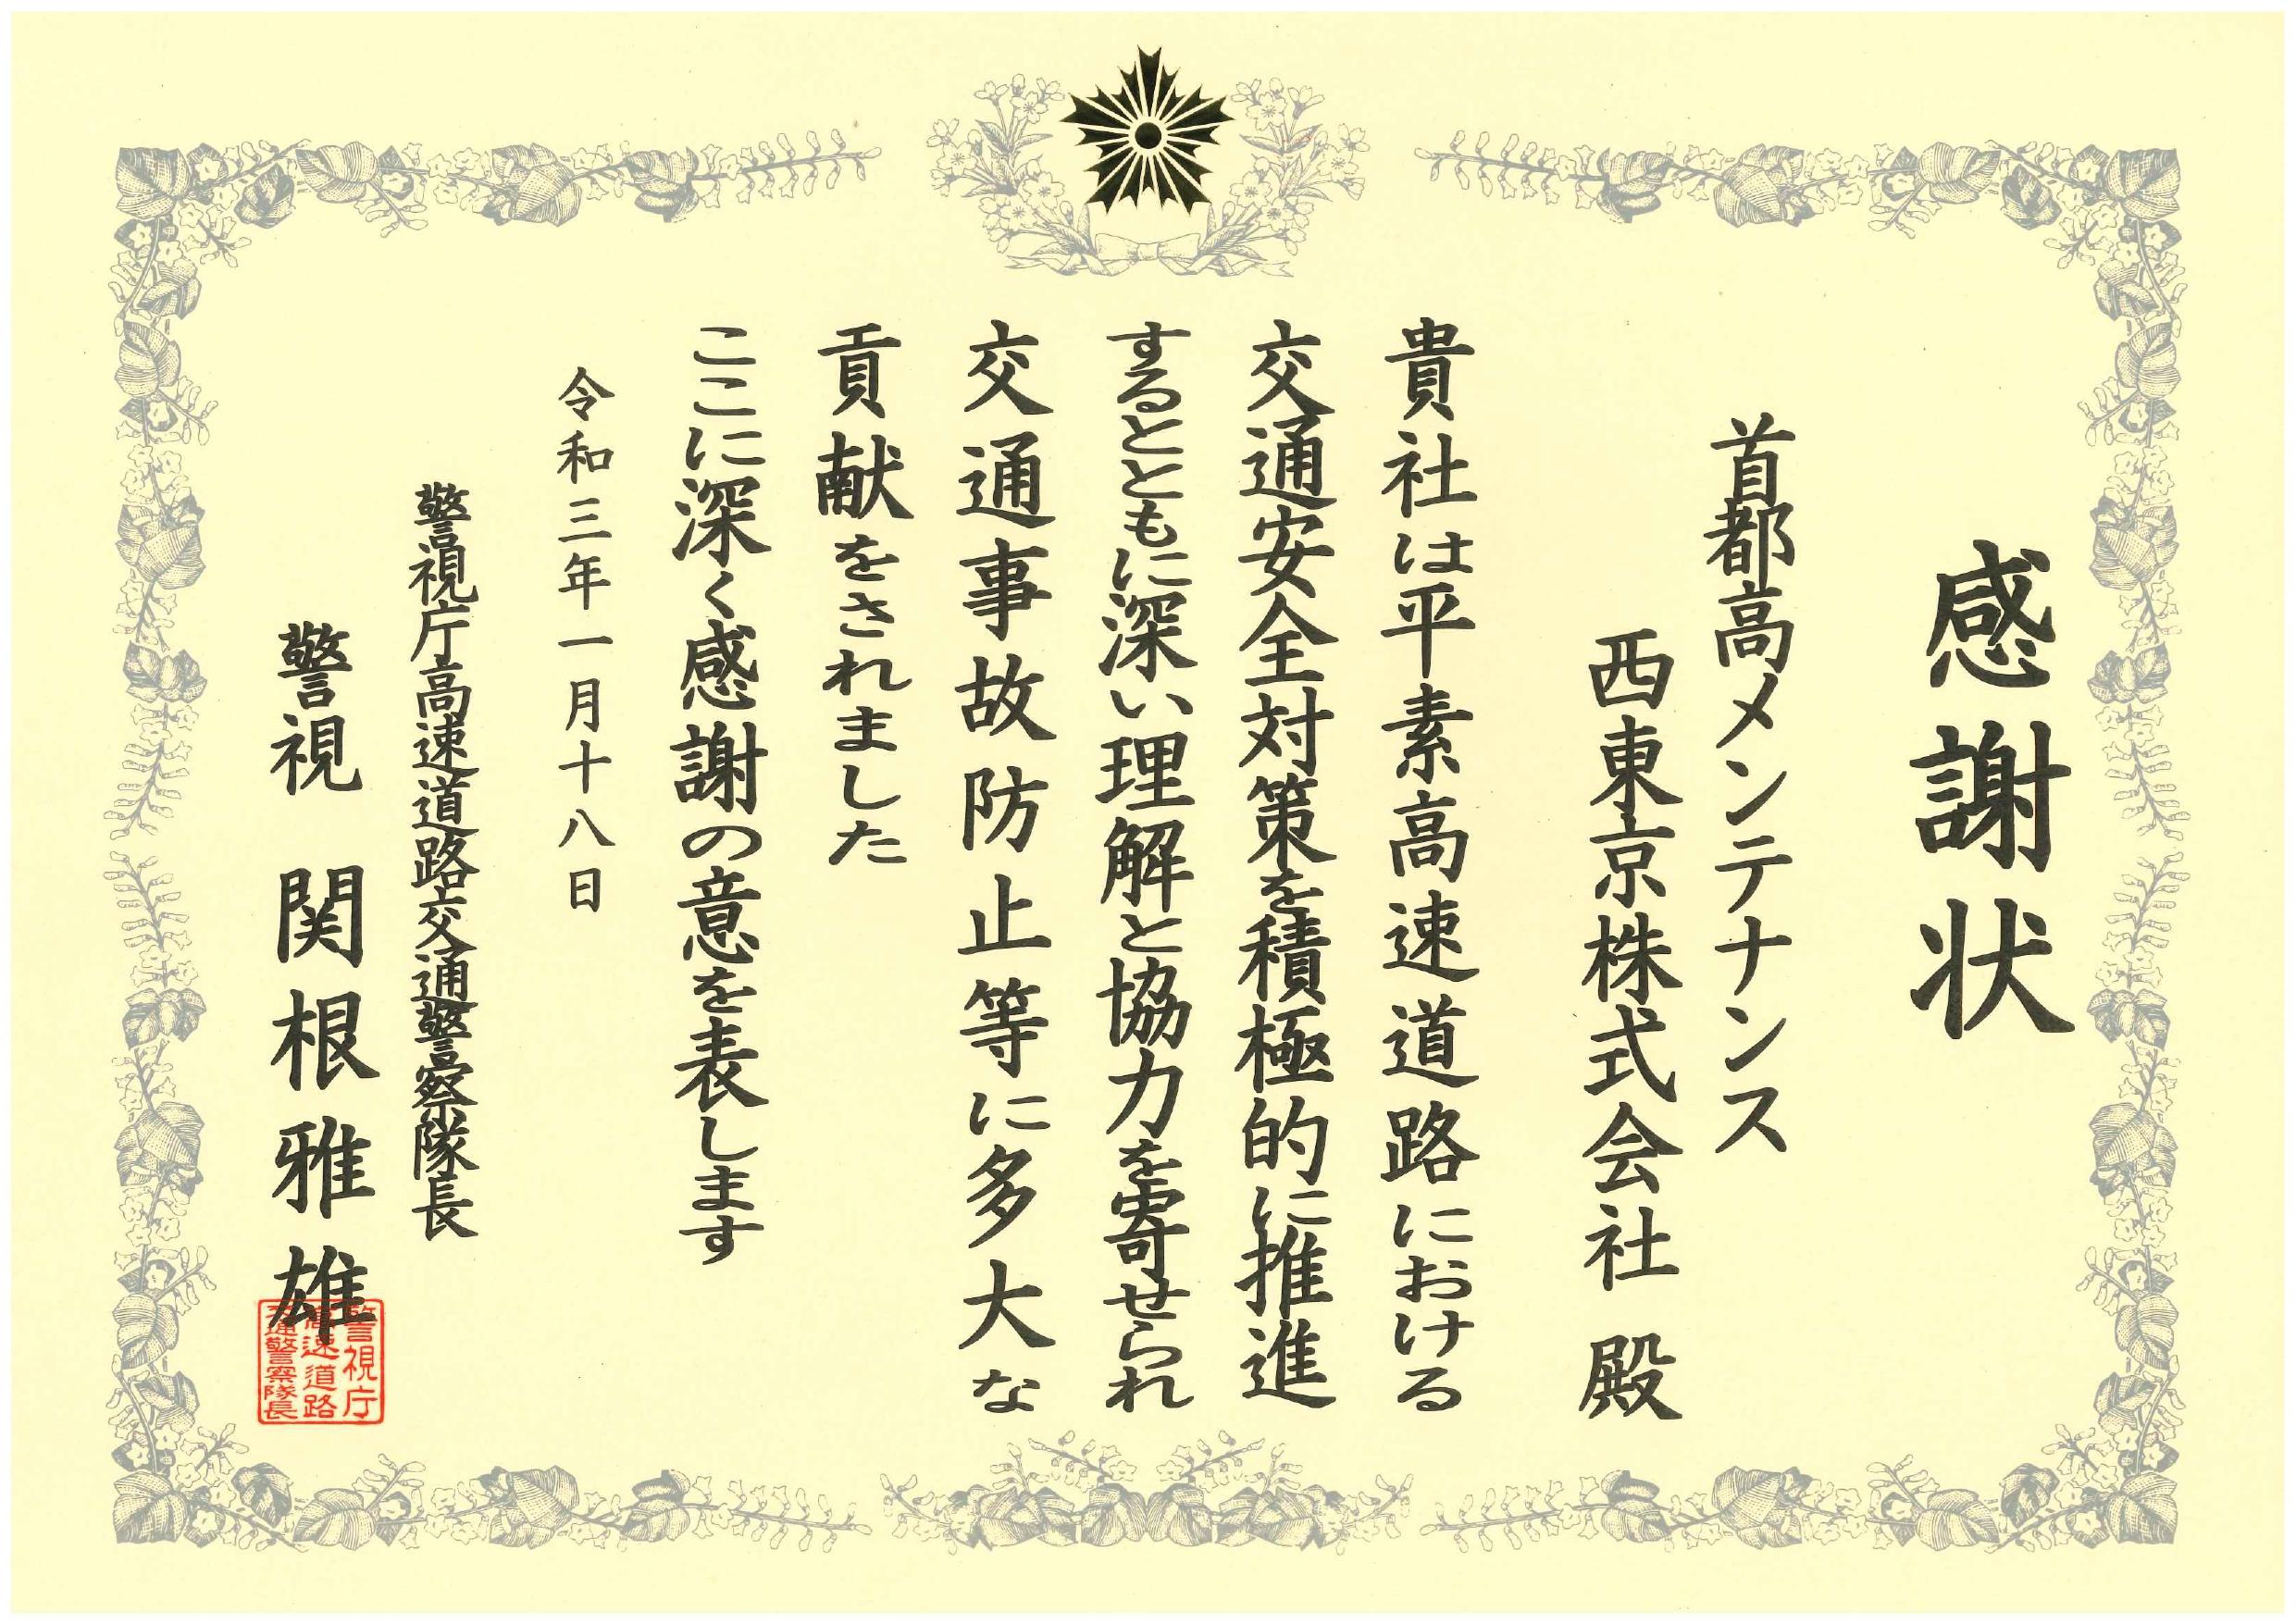 感謝状
首都高メンテナンス
西東京株式会社 殿
貴社は平素高速道路における
交通安全対策を積極的に推進
するとともに深い理解と協力を寄せられ
交通事故防止等に多大な
貢献をされました
ここに深く感謝の意を表します
令和三年一月十八日
警視庁高速道路交通警察隊長
警視 関根雅雄
警視庁
高速道路
交通警察隊長